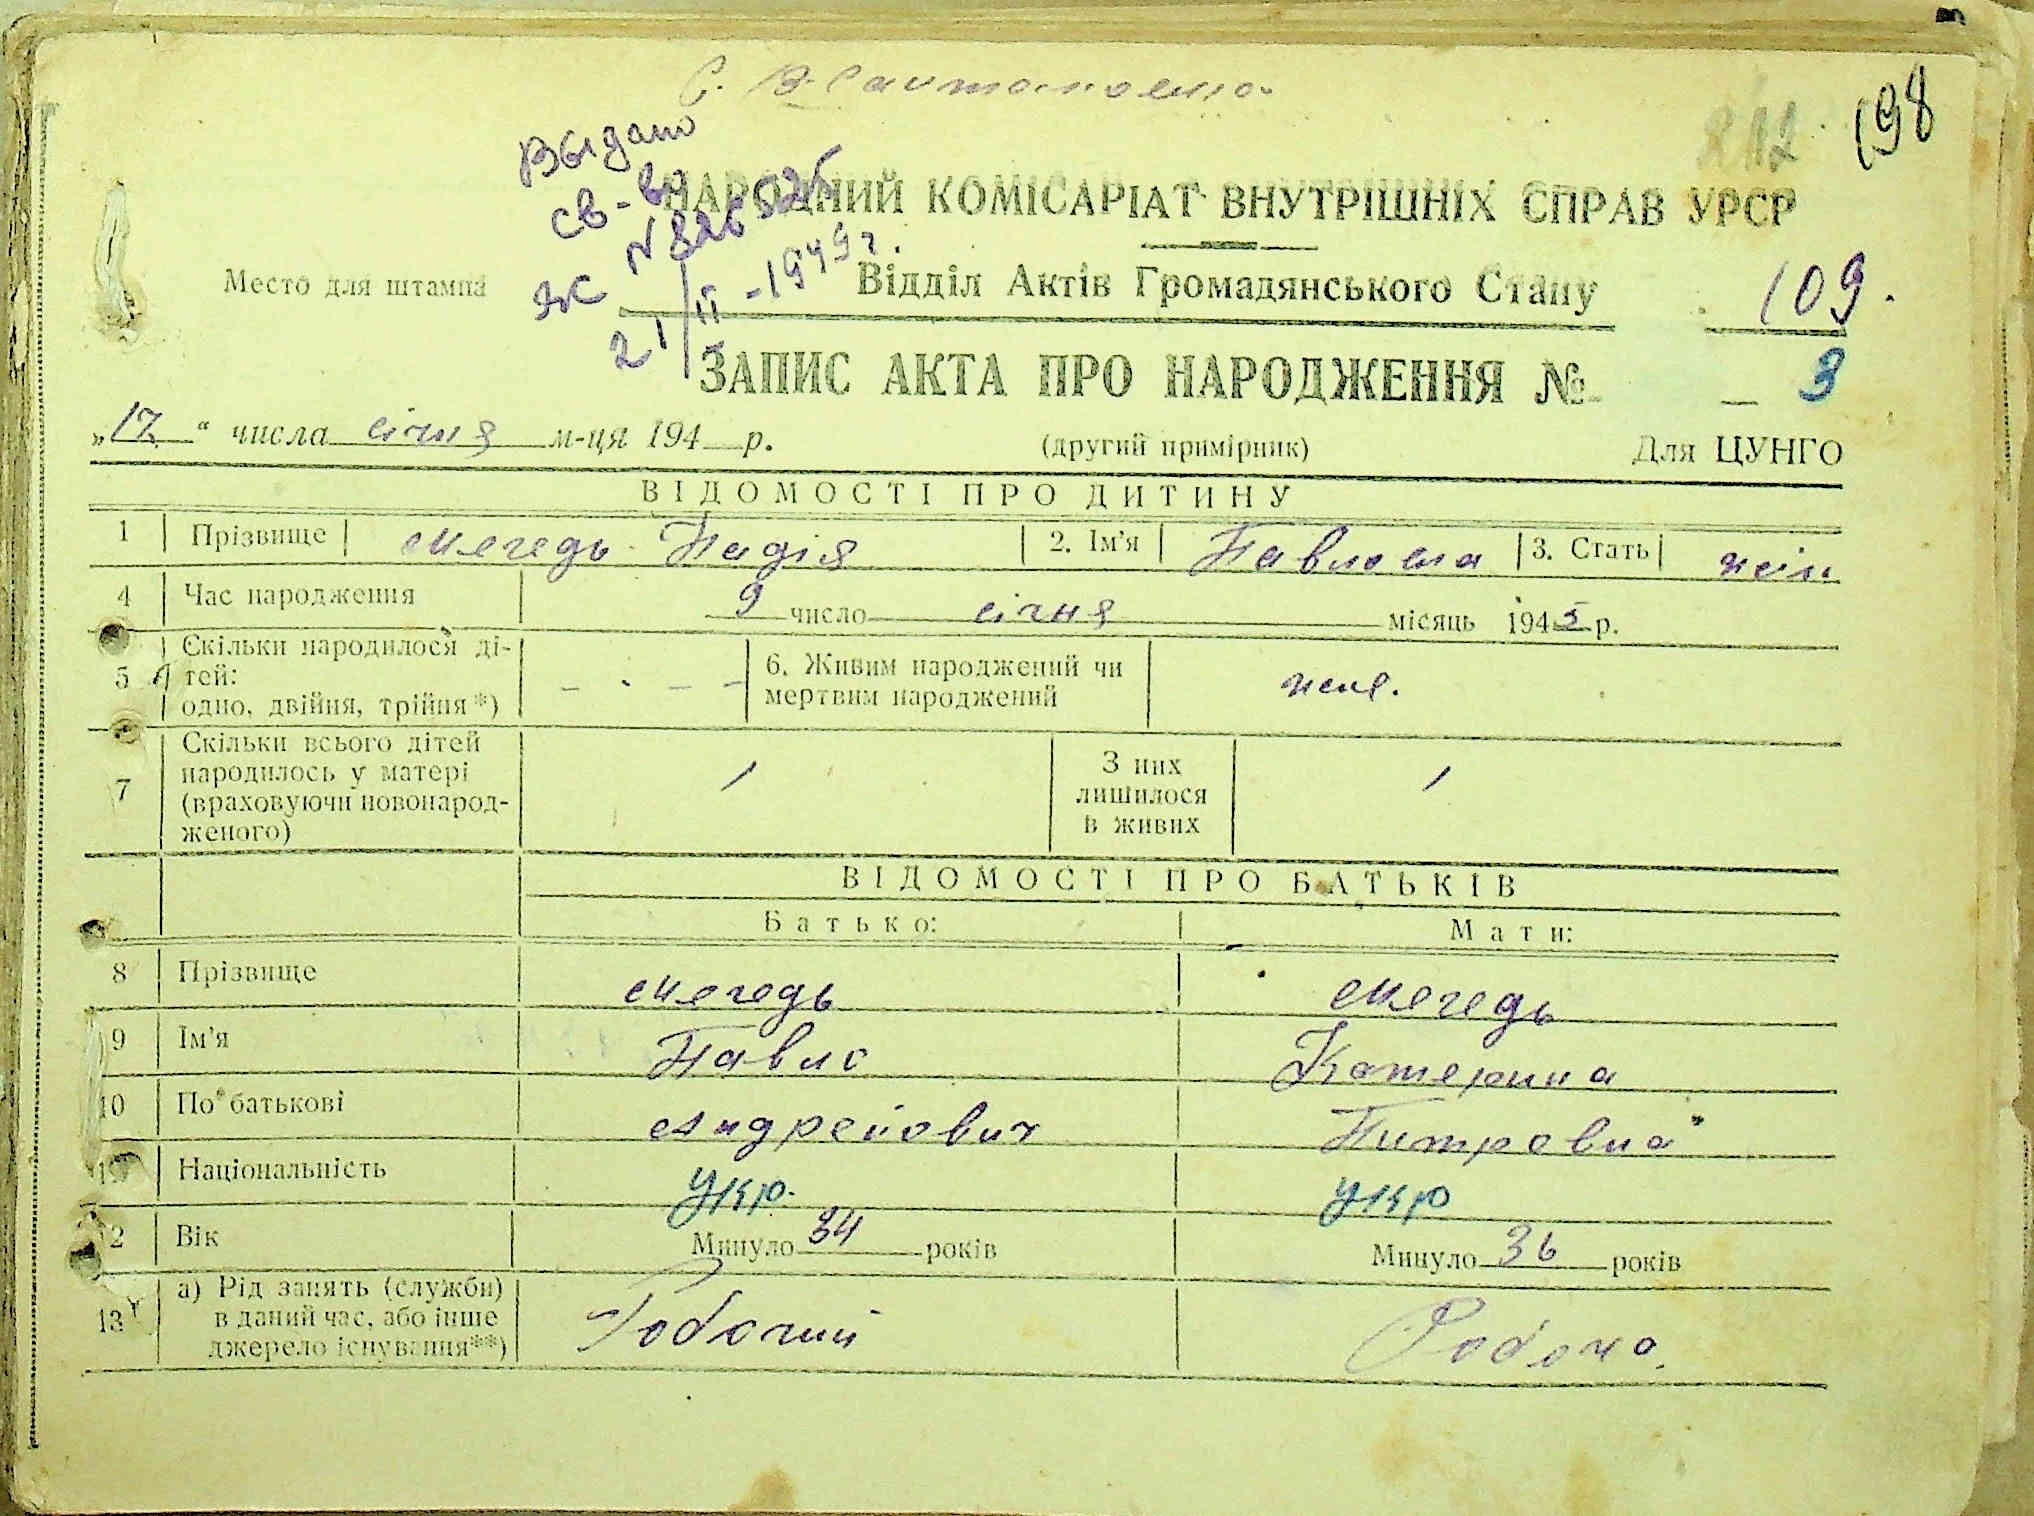 Выдано
св-во
НАРОДНИЙ КОМІСАРІАТ ВНУТРІШНІХ СПРАВ УРСР
198
Место для штампа
ЯС
21/II-1949 г.
Відділ Актів Громадянського Стану
109.
ЗАПИС АКТА ПРО НАРОДЖЕННЯ №
3
„17“ числа січня м-ця 194 р.
(другий примірник)
Для ЦУНГО
ВІДОМОСТІ ПРО ДИТИНУ
1 Прізвище Надія 2. Ім'я Павловна 3. Стать жін
4 Час народження 9 число січня місяць 1945 р.
5 Скільки народилося дітей: одно, двійня, трійня*) 6. Живим народжений чи мертвим народжений
7 Скільки всього дітей народилось у матері (враховуючи новонародженого) 1 З них лишилося в живих 1
ВІДОМОСТІ ПРО БАТЬКІВ
Батько: Мати:
8 Прізвище
9 Ім'я Павло Катерина
10 По батькові Андрейович Питровна
Національність укр. укр
12 Вік Минуло 34 років Минуло 36 років
13 а) Рід занять (служби) в даний час, або інше джерело існування**) Робочий Робоча.